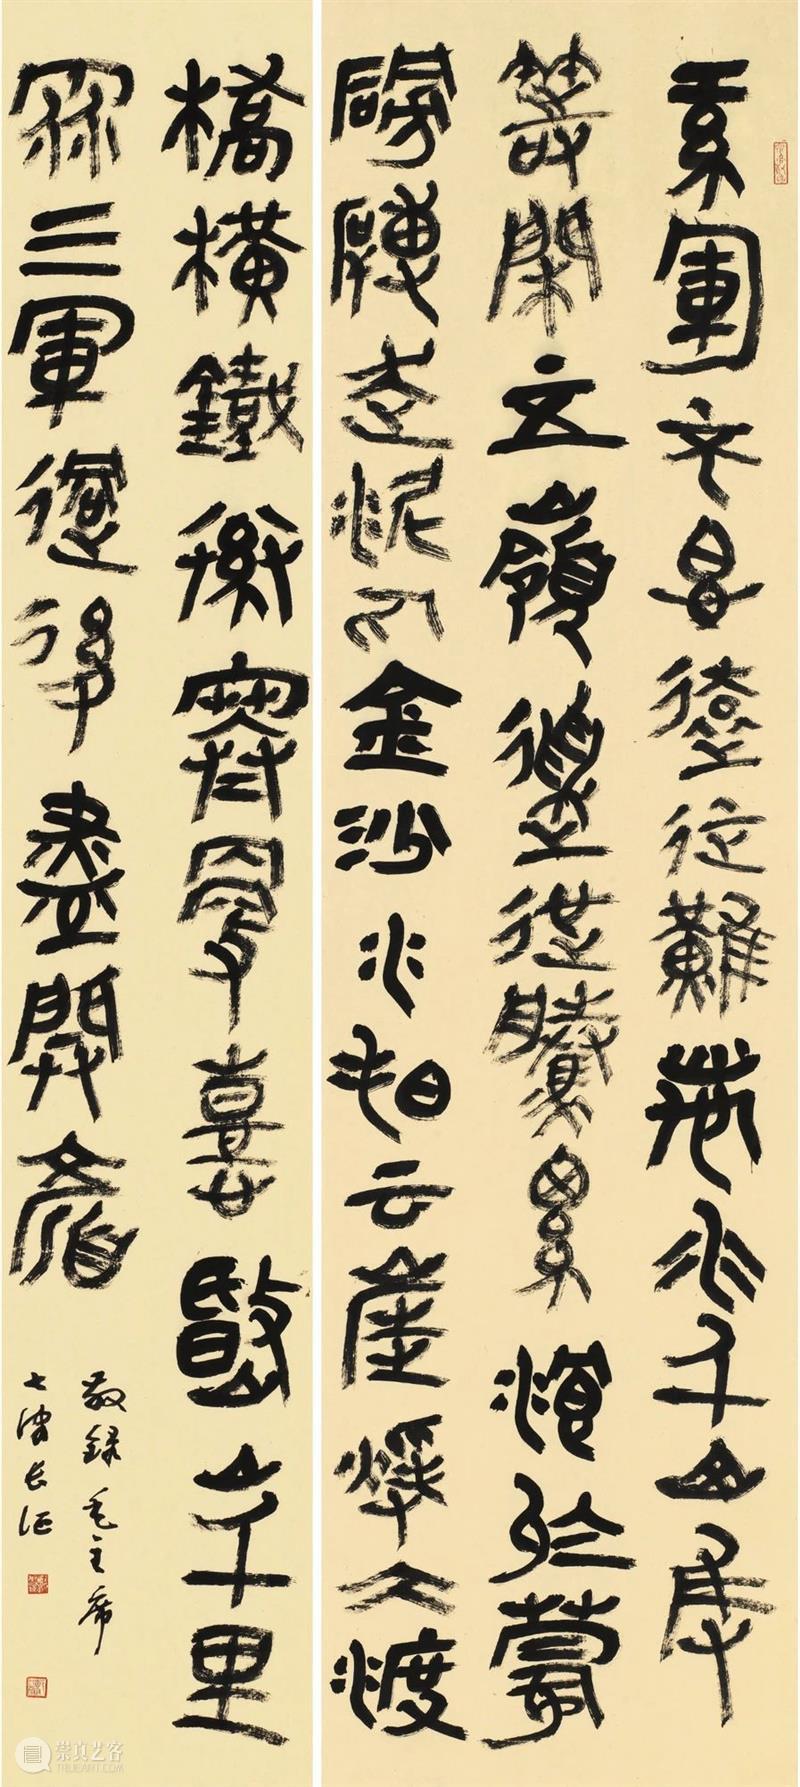 紅軍不怕遠征難萬水千山只
等閑五嶺逶迤騰細浪烏蒙
磅礴走泥丸金沙水拍云崖暖大渡
橋橫鐵索寒更喜岷山千里
雪三軍過後盡開顏
敬録毛主席
七律长征
崇真艺客
TRUEART.COM